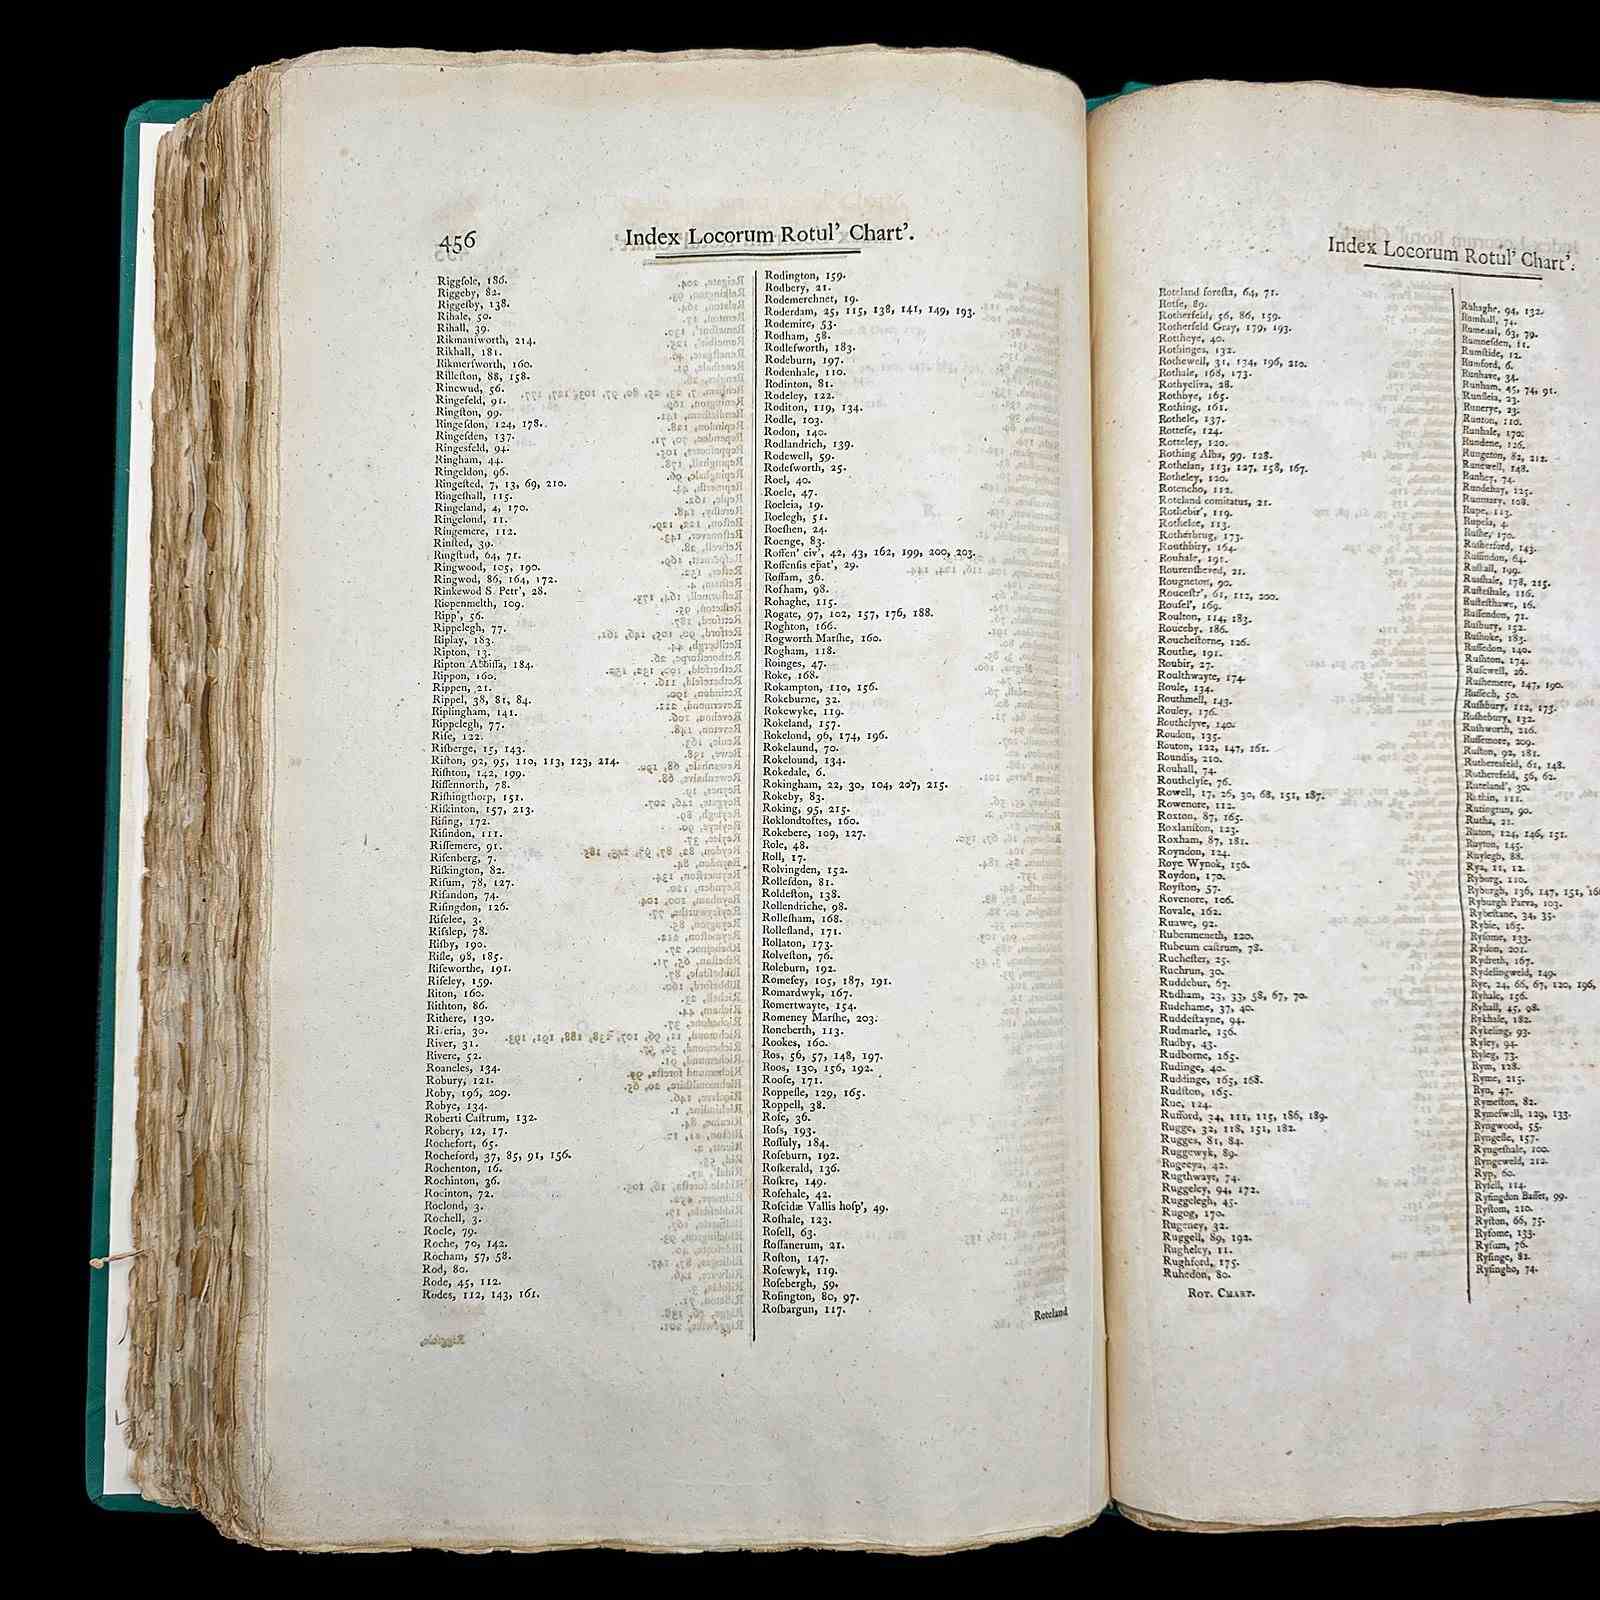 456
Index Locorum Rotul' Chart'.
Riggſole, 186.
Riggeby, 82.
Riggeſby, 138.
Rihale, 50.
Rihall, 39.
Rikmaniworth, 214.
Rikhall, 181.
Rikmerſworth, 160.
Rilleſton, 88, 158.
Rinewud, 56.
Ringefeld, 91.
Ringſton, 99.
Ringeſdon, 124, 178.
Ringeſden, 137.
Ringesfeld, 94.
Ringham, 44.
Ringeldon, 96.
Ringeſted, 7, 13, 69, 210.
Ringeſhall, 115.
Ringeland, 4, 170.
Ringelond, 11.
Ringemere, 112.
Rinſted, 39.
Ringſtud, 64, 71.
Ringwood, 105, 190.
Ringwod, 86, 164, 172.
Rinkewod S. Petr', 28.
Riopenmelth, 109.
Ripp', 56.
Rippelegh, 77.
Riplay, 183.
Ripton, 13.
Ripton Abbiſſa, 184.
Rippon, 160.
Rippen, 21.
Rippel, 38, 81, 84.
Riplingham, 141.
Rippelegh, 77.
Riſe, 122.
Riſberge, 15, 143.
Riſton, 92, 95, 110, 113, 123, 214.
Riſhton, 142, 199.
Riſſennorth, 78.
Riſhingthorp, 151.
Riſkinton, 157, 213.
Riſing, 172.
Riſindon, 111.
Riſſemere, 91.
Riſenberg, 7.
Riſkington, 82.
Riſum, 78, 127.
Riſandon, 74.
Riſingdon, 126.
Riſelee, 3.
Riſslep, 78.
Riſby, 190.
Riſle, 98, 185.
Riſeworthe, 191.
Riſeley, 159.
Riton, 160.
Rithton, 86.
Rithere, 130.
Ri.eria, 30.
River, 31.
Rivere, 52.
Roancles, 134.
Robury, 121.
Roby, 196, 209.
Robye, 134.
Roberti Caſtrum, 132.
Robery, 12, 17.
Rochefort, 65.
Rocheford, 37, 85, 91, 156.
Rochenton, 16.
Rochinton, 36.
Rocinton, 72.
Roclond, 3.
Rochell, 3.
Rocle, 79.
Roche, 70, 142.
Rocham, 57, 58.
Rod, 80.
Rode, 45, 112.
Rodes, 112, 143, 161.
Rodington, 159.
Rodbery, 21.
Rodemerchnet, 19.
Roderdam, 25, 115, 138, 141, 149, 193.
Rodemire, 53.
Rodham, 58.
Rodleſworth, 183.
Rodeburn, 197.
Rodenhale, 110.
Rodinton, 81.
Rodeley, 122.
Roditon, 119, 134.
Rodle, 103.
Rodon, 140.
Rodlandrich, 139.
Rodewell, 59.
Rodeſworth, 25.
Roel, 40.
Roele, 47.
Roeleia, 19.
Roelegh, 51.
Roeſhen, 24.
Roenge, 83.
Roffen' civ', 42, 43, 162, 199, 200, 203.
Roffenſis epat', 29.
Roffam, 36.
Rofham, 98.
Rohaghe, 115.
Rogate, 97, 102, 157, 176, 188.
Roghton, 166.
Rogworth Marſhe, 160.
Rogham, 118.
Roinges, 47.
Roke, 168.
Rokampton, 110, 156.
Rokeburne, 32.
Rokewyke, 119.
Rokeland, 157.
Rokelond, 96, 174, 196.
Rokelaund, 70.
Rokelound, 134.
Rokedale, 6.
Rokingham, 22, 30, 104, 207, 215.
Rokeby, 83.
Roking, 95, 215.
Roklondtoftes, 160.
Rokebere, 109, 127.
Role, 48.
Roll, 17.
Rolvingden, 152.
Rolleſdon, 81.
Roldeſton, 138.
Rollendriche, 98.
Rolleſham, 168.
Rolleſland, 171.
Rollaton, 173.
Rolveſton, 76.
Roleburn, 192.
Romeſey, 105, 187, 191.
Romardwyk, 167.
Romertwayte, 154.
Romeney Marſhe, 203.
Roneberth, 113.
Rookes, 160.
Ros, 56, 57, 148, 197.
Roos, 130, 156, 192.
Rooſe, 171.
Roppeſle, 129, 165.
Roppell, 38.
Roſe, 36.
Roſs, 193.
Roſſuly, 184.
Roſeburn, 192.
Roſkerald, 136.
Roſkre, 149.
Roſehale, 42.
Roſcidæ Vallis hoſp', 49.
Roſhale, 123.
Roſell, 63.
Roſſanerum, 21.
Roſton, 147.
Roſewyk, 119.
Roſebergh, 59.
Roſington, 80, 97.
Roſbargun, 117.
Roteland
Index Locorum Rotul' Chart'.
Roteland foreſta, 64, 71.
Rotſe, 89.
Rotherfeld, 56, 86, 159.
Rotherfeld Gray, 179, 193.
Rottheye, 40.
Rothinges, 132.
Rothewell, 31, 134, 196, 210.
Rothale, 168, 173.
Rothyeliva, 28.
Rothbye, 165.
Rothing, 161.
Rothele, 137.
Rotteſe, 124.
Rotteley, 120.
Rothing Alba, 99, 128.
Rothelan, 113, 127, 158, 167.
Rotheley, 120.
Rotencho, 112.
Roteland comitatus, 21.
Rothebir', 119.
Rothelke, 113.
Rotherbrug, 173.
Routhbiry, 164.
Rouhale, 191.
Rourenſheved, 21.
Rougneton, 90.
Rouceſtr', 61, 112, 200.
Rouſel', 169.
Roulton, 114, 183.
Rouceby, 186.
Roucheſtorne, 126.
Routhe, 191.
Roubir, 27.
Roulthwayte, 174.
Roule, 134.
Routhmell, 143.
Rouley, 176.
Routhclyve, 140.
Roudon, 135.
Routon, 122, 147, 161.
Roundis, 210.
Rouhall, 74.
Routhelyſe, 76.
Rowell, 17, 26, 30, 68, 151, 187.
Rowenore, 112.
Roxton, 87, 165.
Roxlanſton, 123.
Roxham, 87, 181.
Royndon, 124.
Roye Wynok, 156.
Roydon, 170.
Royſton, 57.
Rovenore, 106.
Rovale, 162.
Ruawe, 92.
Rubenmeneth, 120.
Rubeum caſtrum, 78.
Rucheſter, 25.
Ruchrun, 30.
Ruddebur, 67.
Rudham, 23, 33, 58, 67, 70.
Rudehame, 37, 40.
Ruddeſtayne, 94.
Rudmarle, 156.
Rudby, 43.
Rudborne, 165.
Rudinge, 40.
Ruddinge, 165, 168.
Rudſton, 165.
Rue, 124.
Rufford, 24, 111, 115, 186, 189.
Rugge, 32, 118, 151, 182.
Rugges, 81, 84.
Ruggewyk, 89.
Rugeeya, 42.
Rugthwayt, 74.
Ruggeley, 94, 172.
Ruggelegh, 45.
Rugog, 170.
Rugeney, 32.
Ruggell, 89, 192.
Rugheley, 11.
Rughford, 175.
Ruhedon, 80.
Rot. Chart.
Ruhaghe, 94, 132.
Rumhall, 74.
Rumeaal, 63, 79.
Rumneſden, 11.
Rumſtide, 12.
Rumford, 6.
Runhave, 34.
Runham, 45, 74, 91.
Runſleia, 23.
Runerye, 23.
Runton, 110.
Runhale, 170.
Rundene, 126.
Rungeton, 82, 212.
Runewell, 148.
Runhey, 74.
Rundehay, 125.
Runmary, 108.
Rupe, 113.
Rupela, 4.
Ruſhe, 170.
Ruſherford, 143.
Ruſſindon, 64.
Ruſtall, 199.
Rusſhale, 178, 215.
Ruſteſhale, 116.
Ruſteſthawe, 16.
Ruſſendon, 71.
Ruſbury, 152.
Ruſhoke, 183.
Ruſſedon, 140.
Ruſhton, 174.
Ruſewell, 26.
Ruſhemere, 147, 190.
Ruſſech, 50.
Ruſhbury, 112, 173.
Ruſhebury, 132.
Ruſhworth, 216.
Ruſſemore, 209.
Ruſton, 92, 181.
Rutheresfeld, 61, 148.
Rutherefeld, 56, 62.
Ruteland', 30.
Rutkin, 111.
Rutington, 90.
Rutha, 21.
Ruton, 124, 146, 151.
Ruyton, 145.
Ruylegh, 88.
Rya, 11, 12.
Ryburg, 110.
Ryburgh, 136, 147, 151,
Ryburgh Parva, 103.
Rybeſtane, 34, 35.
Rybie, 165.
Ryſome, 133.
Rydon, 201.
Rydreth, 167.
Rydelingweld, 149.
Rye, 24, 66, 67, 120, 196,
Ryhale, 156.
Ryhall, 45, 98.
Rykhale, 182.
Rykeling, 93.
Ryley, 94.
Ryleg, 73.
Rym, 128.
Ryme, 215.
Ryn, 47.
Rymeſton, 82.
Rymeſwell, 129, 133.
Ryngwood, 55.
Ryngeſle, 157.
Ryngeſhale, 100.
Ryngeweld, 212.
Ryp, 60.
Ryſell, 114.
Ryſingdon Baſſet, 99.
Ryſtom, 210.
Ryſton, 66, 75.
Ryſome, 133.
Ryſum, 76.
Ryſinge, 82.
Ryſingho, 74.